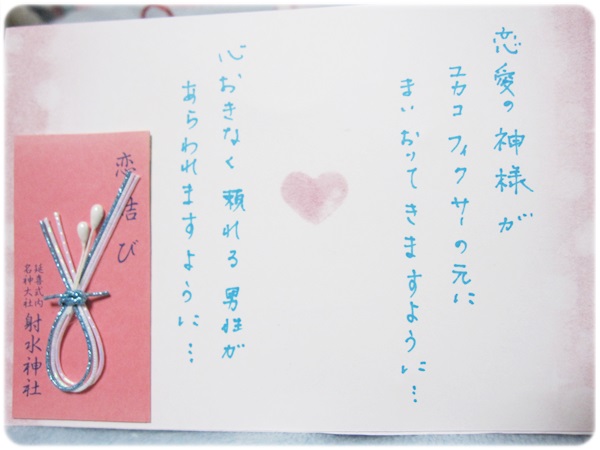 恋愛の神様が
ユカコ フィクサーの元に
まいおりてきますように…
心おきなく頼れる男性が
あらわれますように…
恋結び
延喜式内
名神大社
射水神社